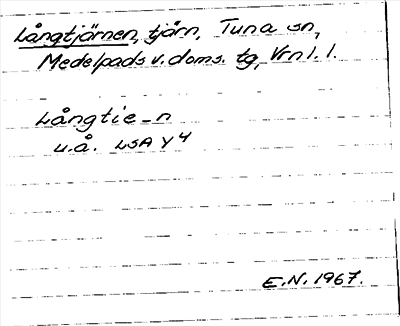 Långtjärnen, tjärn, Tuna sn,
Medelpads v. doms. tg, Vrnl. l.
Långtie_n
u.å. LSA Y4
E.N. 1967.